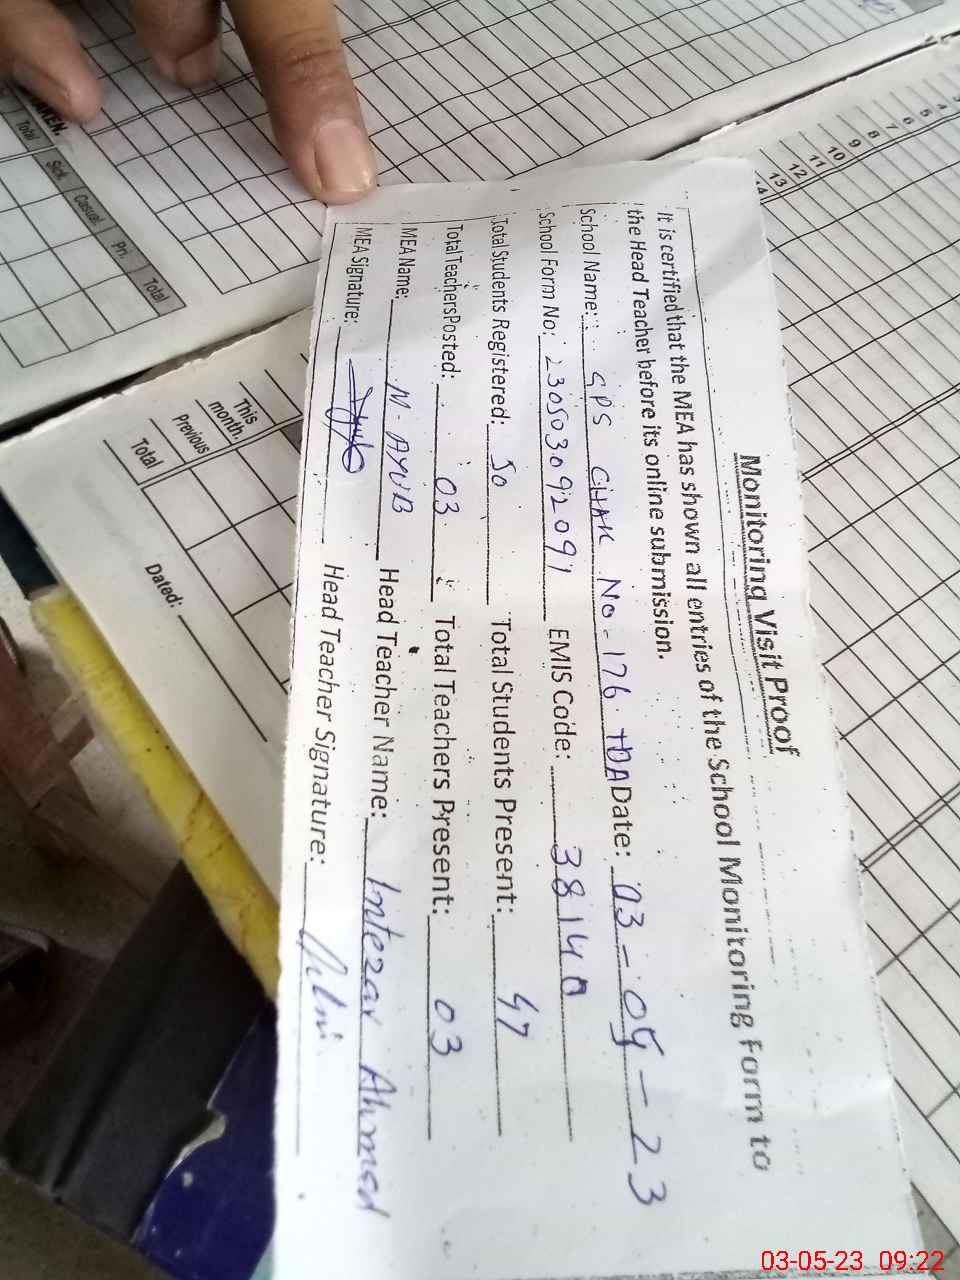 Monitoring Visit Proof
It is certified that the MEA has shown all entries of the School Monitoring Form to
the Head Teacher before its online submission.
School Name: SPS CHAK No-176 TDA Date: 03-05-23
School Form No: 23050309209 EMIS Code: 38140
Total Students Registered: 50 Total Students Present: 47
Total Teachers Posted: 03 Total Teachers Present: 03
MEA Name: M-AYUB Head Teacher Name: Intezar Ahmed
MEA Signature: Head Teacher Signature:
Total Sick Casual Pri. Total
This month.
Previous
Total
Dated:
14 13 12 11 10 9 8 7 6 5 4
03-05-23 09:22